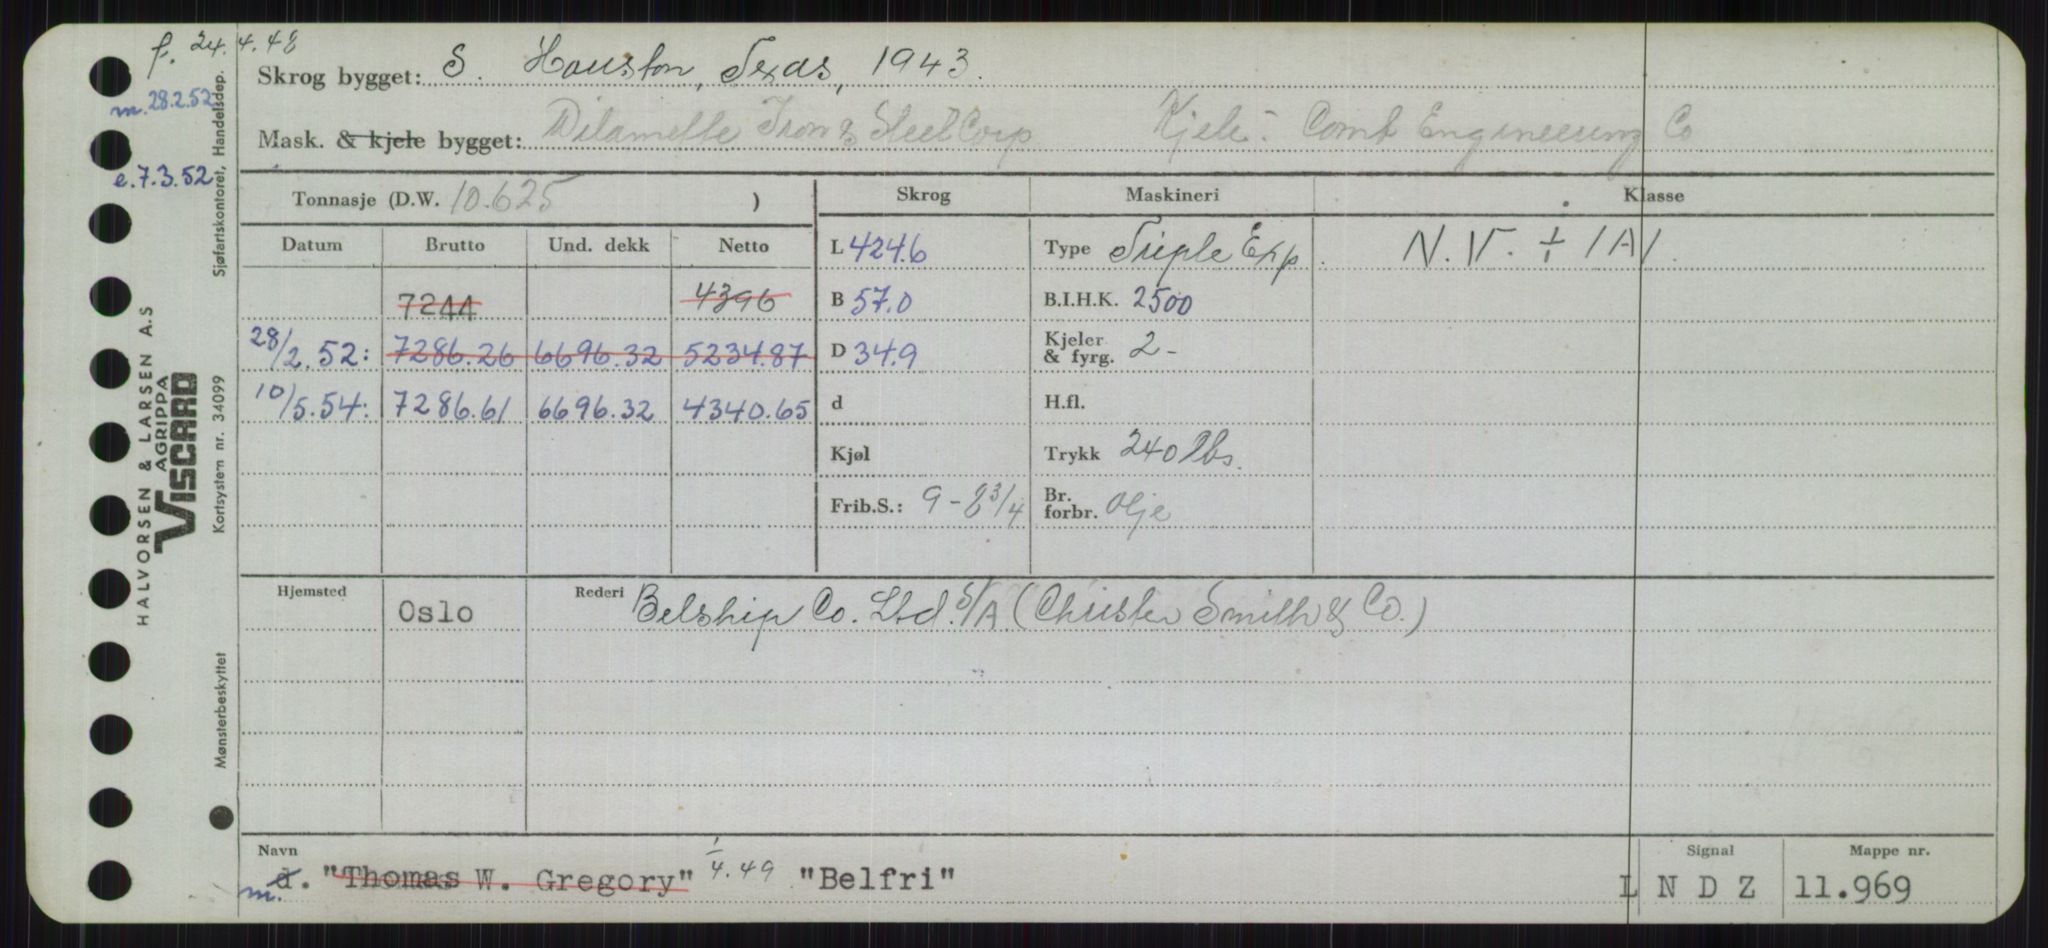 f. 24.4.48
m. 28.2.52
e. 7.3.52
Skrog bygget: S. Houston, Texas, 1943.
Mask. & kjele bygget: Wilamette Iron & Steel Corp. Kjele:- Comb Engineering Co
Tonnasje (D.W. 10.625 )
Skrog Maskineri Klasse
Datum Brutto Und. dekk Netto
L 424.6 Type Triple Exp. N.V. + 1A1.
7244 4396 B 57.0 B.I.H.K. 2500
28/2.52: 7286.26 6696.32 5234.87 D 34.9 Kjeler & fyrg. 2-
10/5.54: 7286.61 6696.32 4340.65 d H.fl.
Kjøl Trykk 240 lbs.
Frib.S.: 9-8 3/4 Br. forbr. Olje
Hjemsted Oslo Rederi Belship Co. Ltd. S/A (Christen Smith & Co.)
Navn Signal Mappe nr.
m. d. "Thomas W. Gregory" 1/4.49 "Belfri" L N D Z 11.969
HALVORSEN & LARSEN A.S
AGRIPPA
VISCARD
Sjøfartskontoret, Handelsdep.
Kortsystem nr. 34099
Mønsterbeskyttet